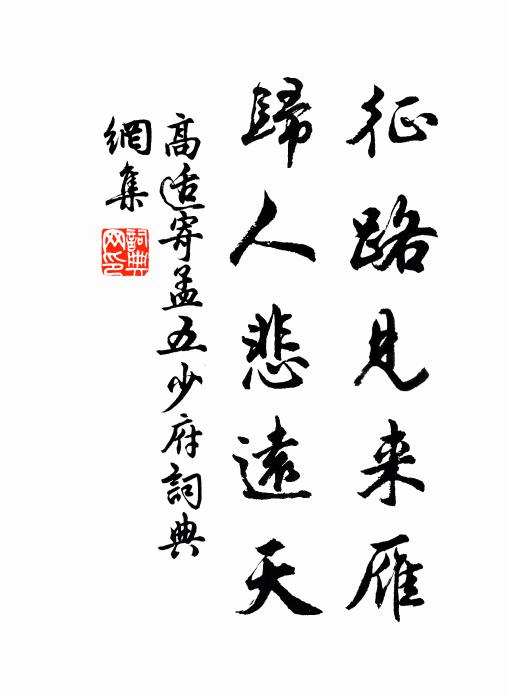 征路見来雁
歸人悲遠天
高适寄孟五少府詞典
網集
詞典網印